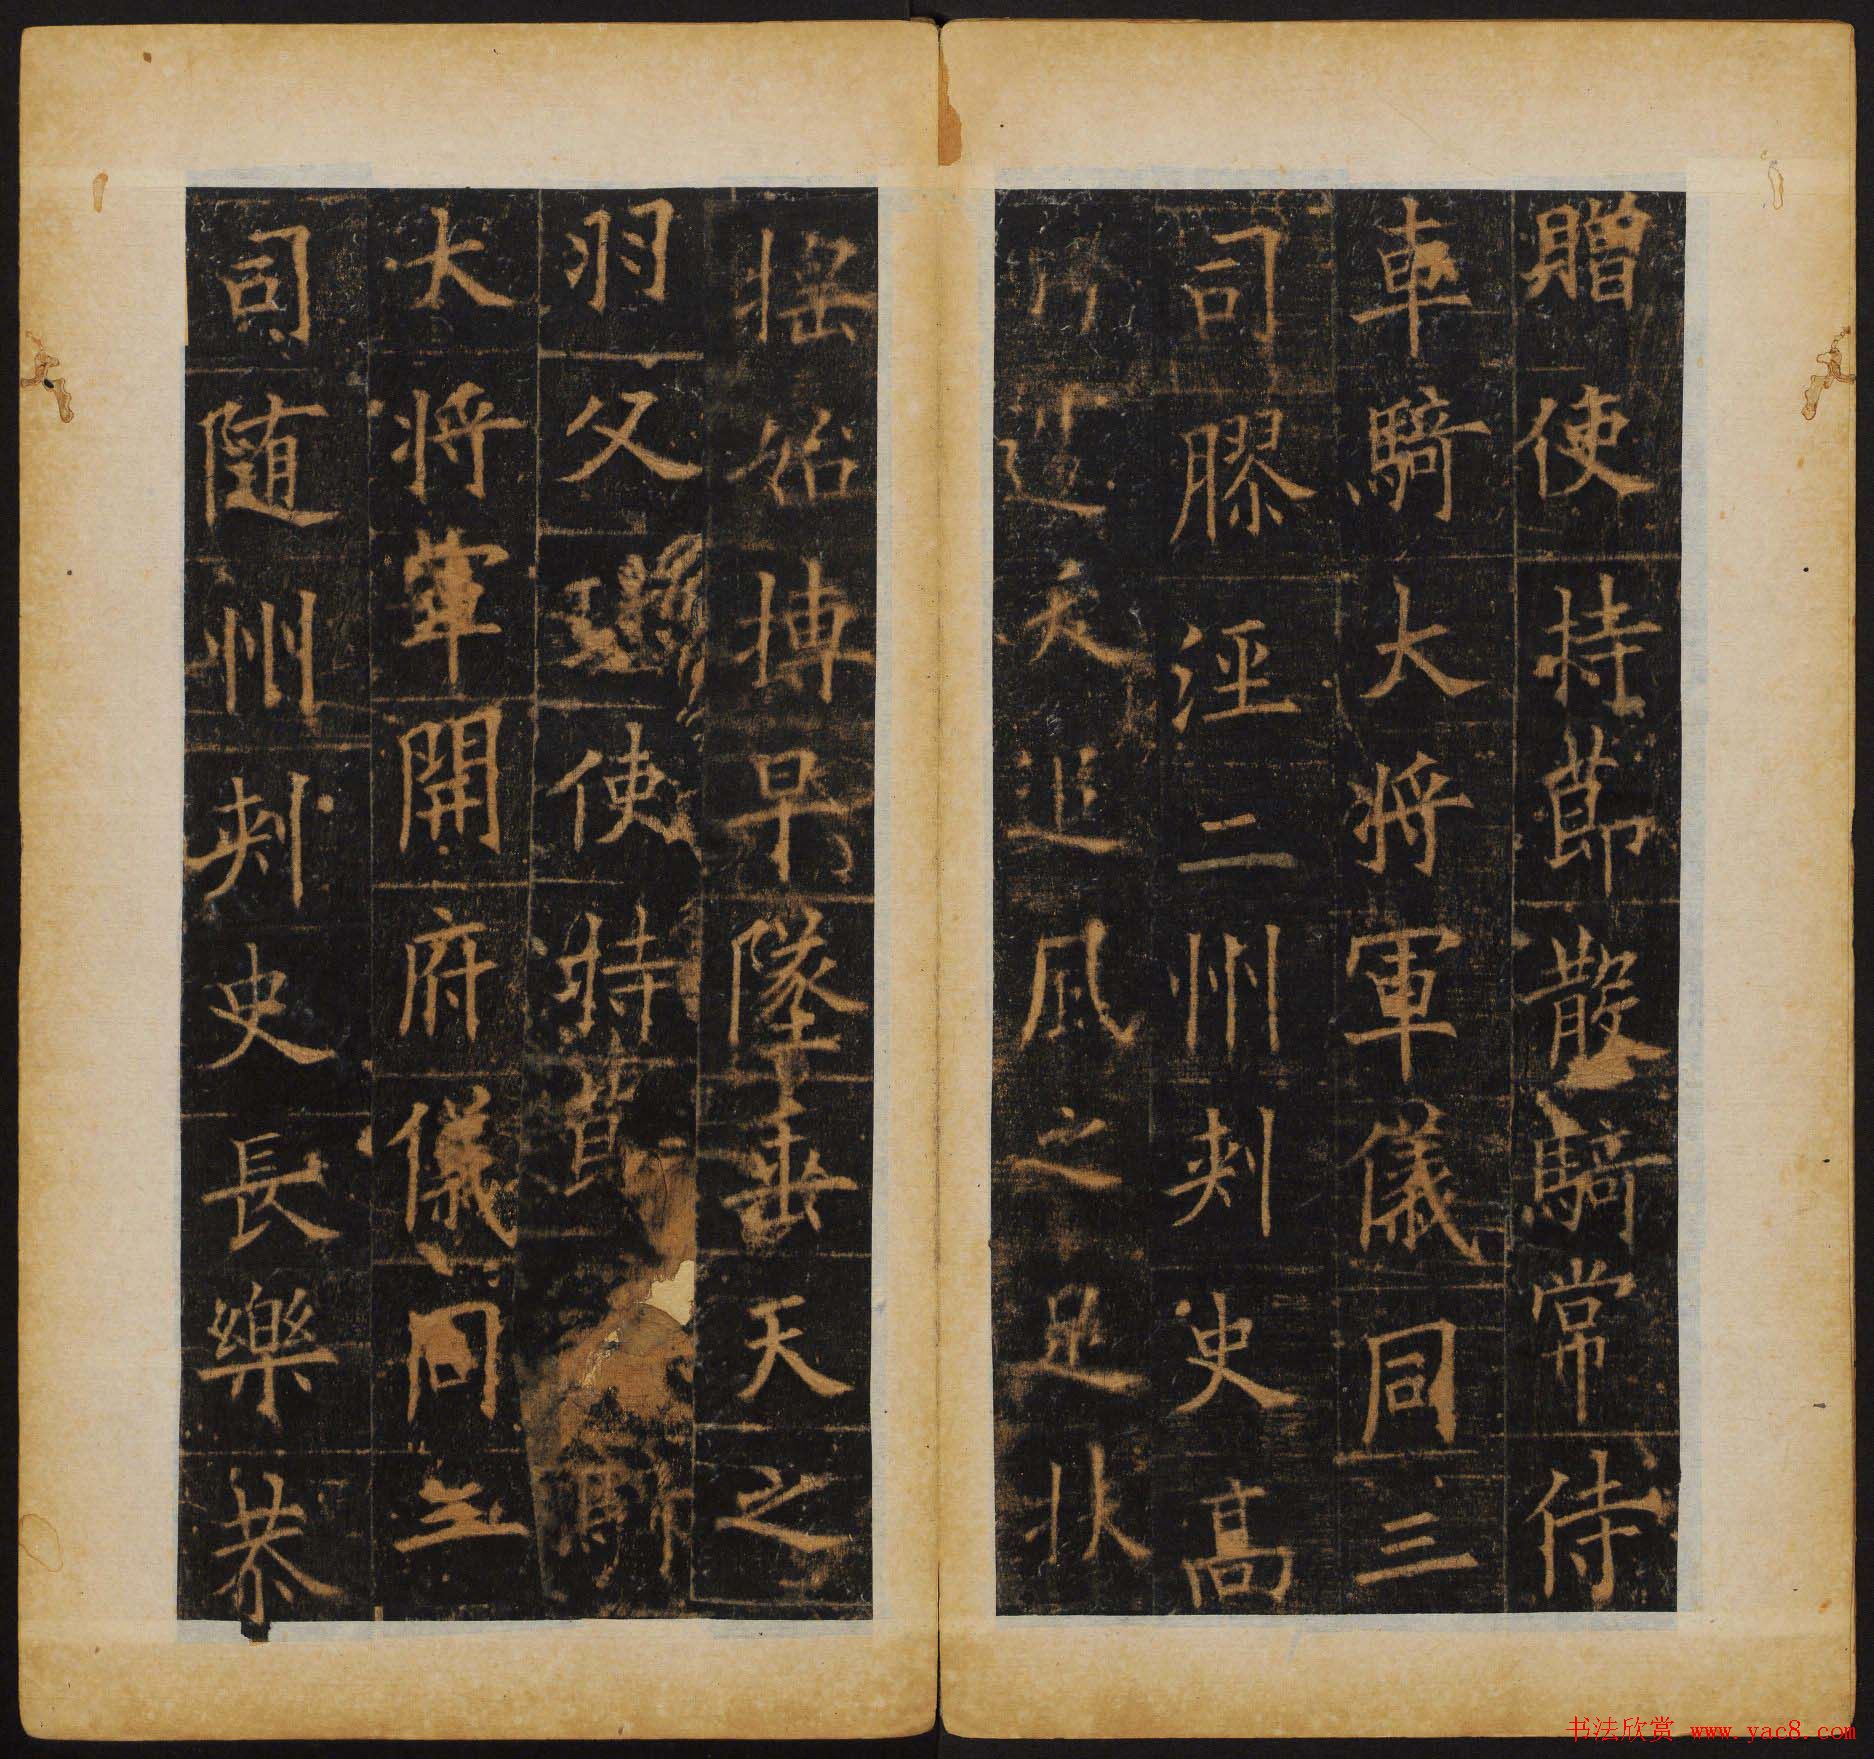 贈使持節散騎常侍
車騎大將軍儀同三
司膠涇二州刺史高
夭追風之足扶
搖始搏早墜垂天之
羽父使持
大將軍開府儀同三
司随州刺史長樂恭
书法欣赏 www.yac8.com